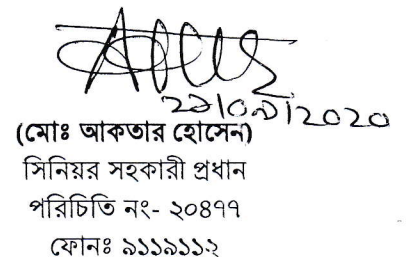 ২৯/০৯/২০২০
(মোঃ আকতার হোসেন)
সিনিয়র সহকারী প্রধান
পরিচিতি নং- ২০৪৭৭
ফোনঃ ৯১১৯১১২